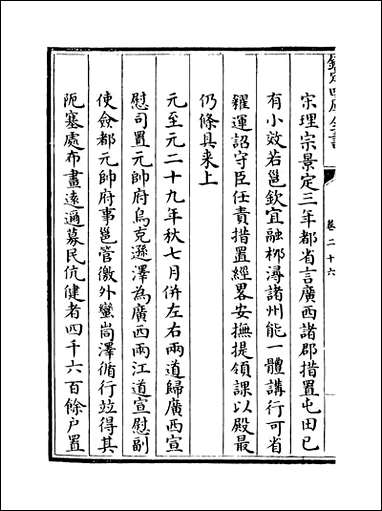 欽定四庫全書
卷二十六
宋理宗景定三年都省言廣西諸郡措置屯田已
有小效若邕欽宜融柳潯諸州能一體講行可省
糴運詔守臣任責措置經畧安撫提領課以殿最
仍條具来上
元至元二十九年秋七月併左右兩道歸廣西宣
慰司置元帥府烏克遜澤為廣西兩江道宣慰副
使僉都元帥府事邕管徼外蠻峝澤循行竝得其
阨塞處布畫逺邇募民伉健者四千六百餘户置